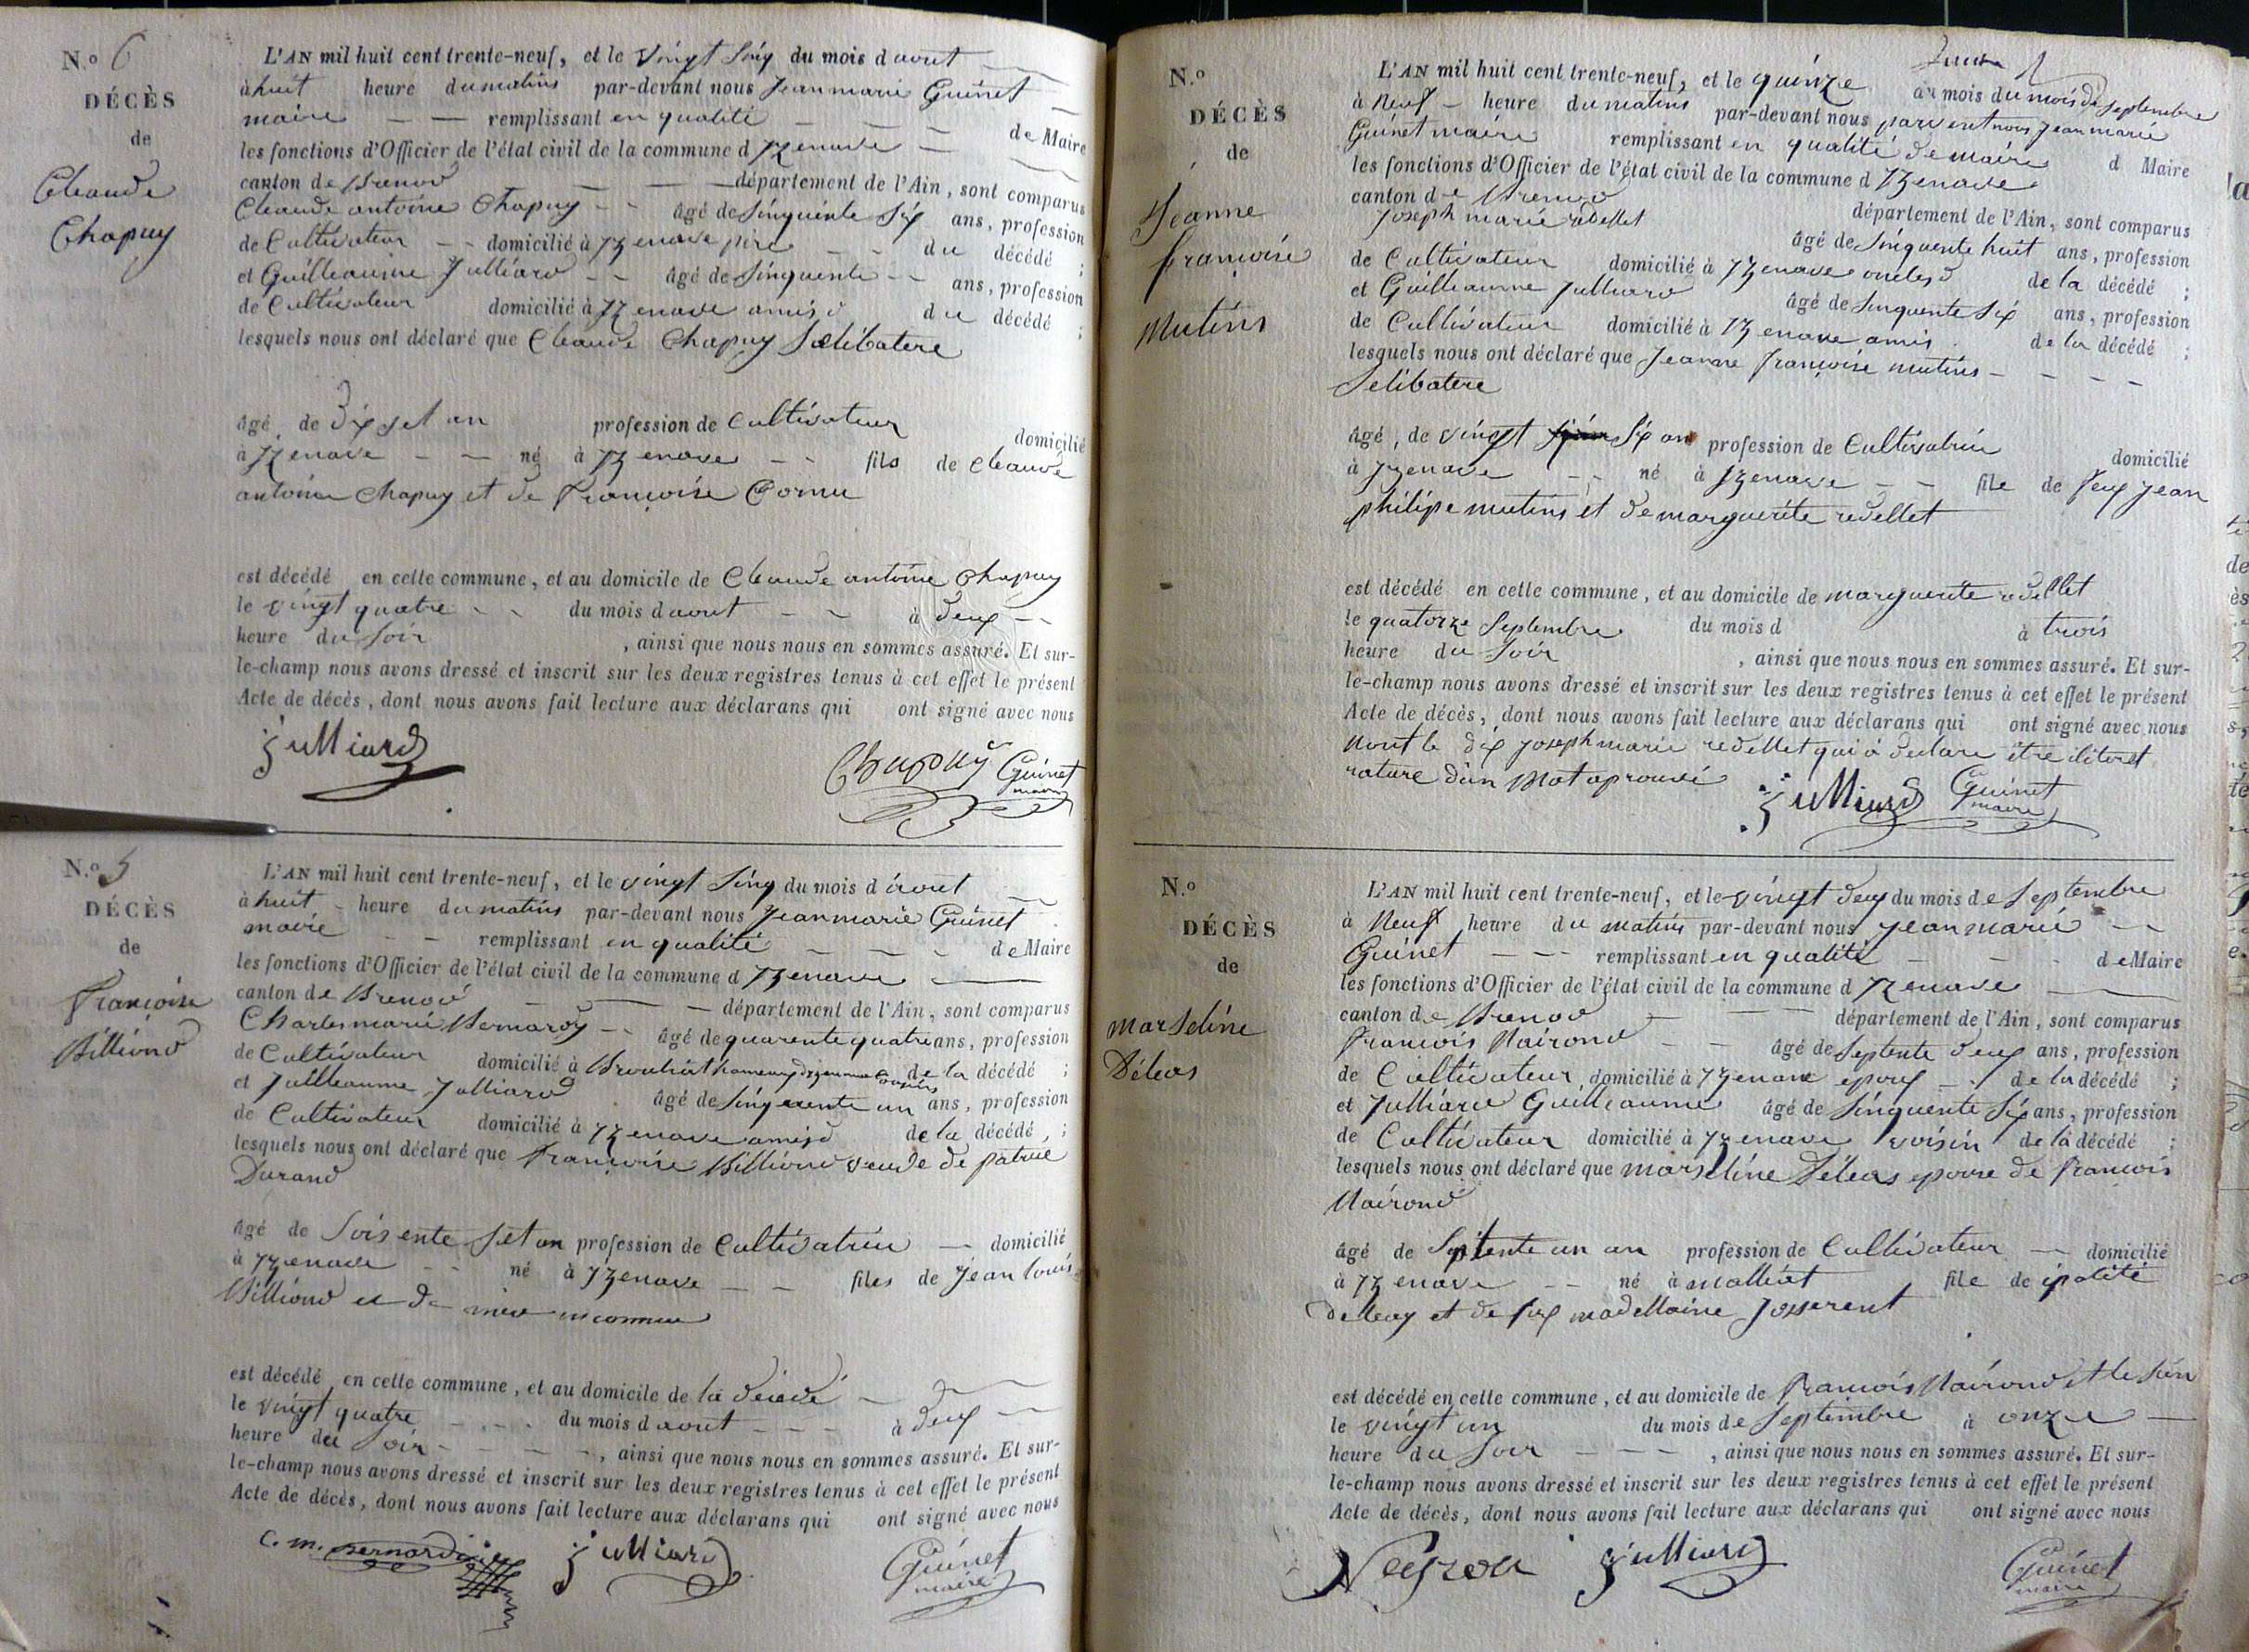 N.o 6
DÉCÈS
de
Cleaude
Chapuy
L'AN mil huit cent trente-neuf, et le vingt sinq du mois d aout
à huit heure du matins par-devant nous jean marie Guinet
maire remplissant en qualité de Maire
les fonctions d'Officier de l'état civil de la commune d yzenave
canton de Brenod département de l'Ain, sont comparus
Cleaude antoine Chapuy âgé de sinquente six ans, profession
de Cultivateur domicilié à yzenave père du décédé ;
et Guilleaume Julliard âgé de sinquente ans, profession
de Cultivateur domicilié à yzenave amis d du décédé ;
lesquels nous ont déclaré que Cleaude Chapuy Selibatere
âgé de dix set an profession de Cultivateur domicilié
à yzenave né à yzenave fils de Cleaude
antoine Chapuy et de françoise Cornu
est décédé en cette commune, et au domicile de Cleaude antoine Chapuy
le vingt quatre du mois d aout à deux
heure du soir , ainsi que nous nous en sommes assuré. Et sur-
le-champ nous avons dressé et inscrit sur les deux registres tenus à cet effet le présent
Acte de décès, dont nous avons fait lecture aux déclarans qui ont signé avec nous
julliard Chapuy Guinet
maire
N.o 5
DÉCÈS
de
françoise
Billiond
L'AN mil huit cent trente-neuf, et le vingt sinq du mois d aout
à huit heure du matins par-devant nous jean marie Guinet
maire remplissant en qualité de Maire
les fonctions d'Officier de l'état civil de la commune d yzenave
canton de Brenod département de l'Ain, sont comparus
Charles marie Bernardy âgé de quarente quatre ans, profession
de Cultivateur domicilié à de la décédé ;
et juilleaume julliard âgé de sinquente un ans, profession
de Cultivateur domicilié à yzenave amis d de la décédé ;
lesquels nous ont déclaré que françoise Billiond veuve de patrue
Durand
âgé de soisente set an profession de Cultivatrice domicilié
à yzenave né à yzenave files de jean louis
Billiond et de mère inconnue
est décédé en cette commune, et au domicile de la décédé
le vingt quatre du mois d aout à deux
heure du soir , ainsi que nous nous en sommes assuré. Et sur-
le-champ nous avons dressé et inscrit sur les deux registres tenus à cet effet le présent
Acte de décès, dont nous avons fait lecture aux déclarans qui ont signé avec nous
C. m. Bernardy julliard Guinet
maire
N.o
DÉCÈS
de
Jeanne
françoise
Mutins
L'AN mil huit cent trente-neuf, et le quinze du mois du mois de septembre
à Neuf heure du matins par-devant nous par devent nous jean marie
Guinet maire remplissant en qualité de maire d Maire
les fonctions d'Officier de l'état civil de la commune d yzenave
canton de Brenod département de l'Ain, sont comparus
joseph marie redellet âgé de sinquente huit ans, profession
de Cultivateur domicilié à yzenave oncles d de la décédé ;
et Guilleaume julliard âgé de sinquente six ans, profession
de Cultivateur domicilié à yzenave amis de la décédé ;
lesquels nous ont déclaré que jeanne françoise mutins
Selibatere
âgé, de vingt six an profession de Cultivatrice domicilié
à yzenave né à yzenave file de feux jean
philipe mutins et de marguerite redellet
est décédé en cette commune, et au domicile de marguerite redellet
le quatorze septembre du mois d à trois
heure du soir , ainsi que nous nous en sommes assuré. Et sur-
le-champ nous avons dressé et inscrit sur les deux registres tenus à cet effet le présent
Acte de décès, dont nous avons fait lecture aux déclarans qui ont signé avec nous
Nont le dix joseph marie redellet qui à declare être iliteret
rature d'un Mot aprouvé
julliard Guinet
maire
N.o
DÉCÈS
de
marseline
Déleas
L'AN mil huit cent trente-neuf, et le vingt deux du mois de septembre
à Neuf heure du matins par-devant nous jean marie
Guinet remplissant en qualité de Maire
les fonctions d'Officier de l'état civil de la commune d yzenave
canton de Brenod département de l'Ain, sont comparus
françois Nairond âgé de septente deux ans, profession
de Cultivateur domicilié à yzenave epoux de la décédé ;
et julliard Guilleaume âgé de sinquente six ans, profession
de Cultivateur domicilié à yzenave voisin de la décédé ;
lesquels nous ont déclaré que marseline Déleas epouse de françois
Nairond
âgé de septente un an profession de Cultivateur domicilié
à yzenave né à malliat file de ipolité
deleas et de feux madellaine josserent
est décédé en cette commune, et au domicile de françois Nairond et le sien
le vingt un du mois de septembre à onze
heure du soir , ainsi que nous nous en sommes assuré. Et sur-
le-champ nous avons dressé et inscrit sur les deux registres tenus à cet effet le présent
Acte de décès, dont nous avons fait lecture aux déclarans qui ont signé avec nous
Neyrou julliard Guinet
maire